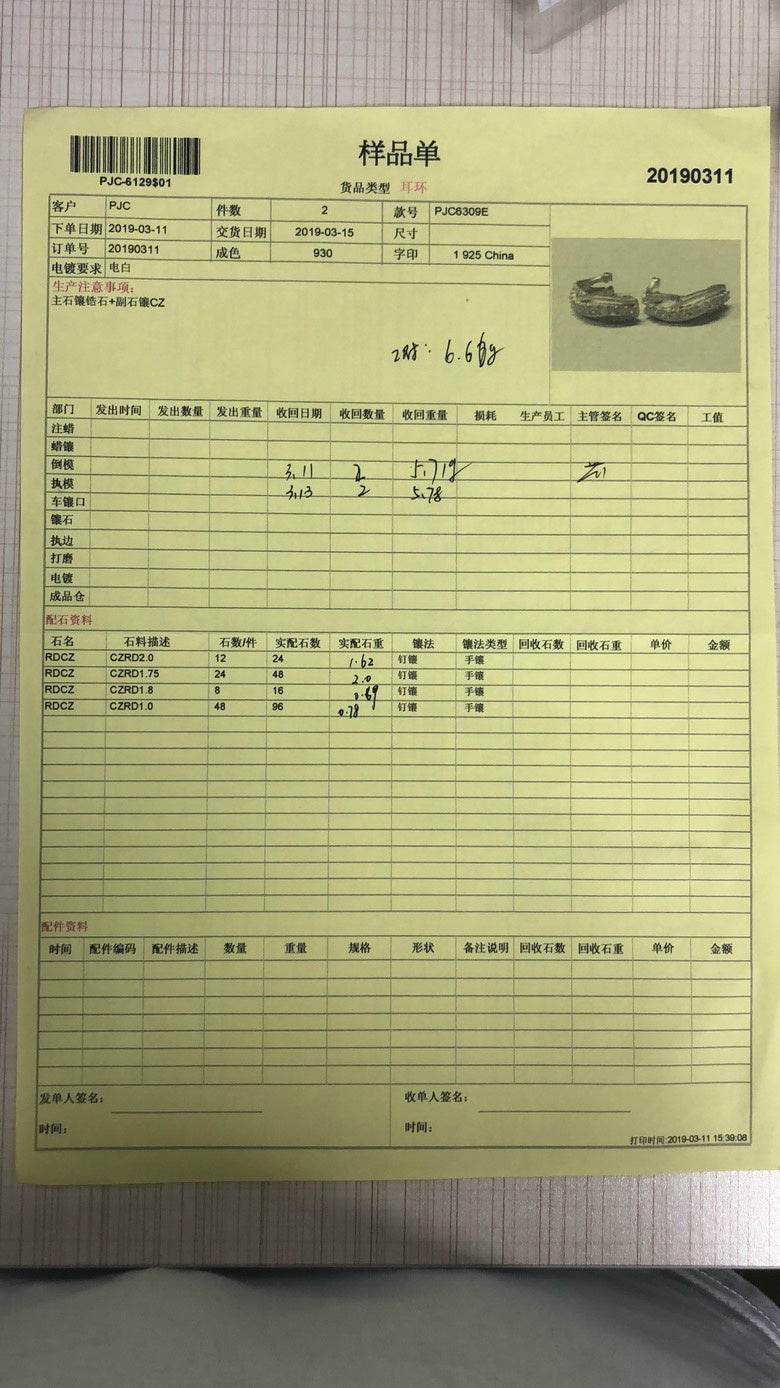 样品单
PJC-6129$01
货品类型 耳环
20190311
客户 PJC 件数 2 款号 PJC6309E
下单日期 2019-03-11 交货日期 2019-03-15 尺寸
订单号 20190311 成色 930 字印 1 925 China
电镀要求 电白
生产注意事项：
主石镶锆石+副石镶CZ
部门 发出时间 发出数量 发出重量 收回日期 收回数量 收回重量 损耗 生产员工 主管签名 QC签名 工值
注蜡
蜡镶
倒模 3.11 2 5.71g
执模 3.13 2 5.78
车镶口
镶石
执边
打磨
电镀
成品仓
配石资料
石名 石料描述 石数/件 实配石数 实配石重 镶法 镶法类型 回收石数 回收石重 单价 金额
RDCZ CZRD2.0 12 24 1.62 钉镶 手镶
RDCZ CZRD1.75 24 48 2.0 钉镶 手镶
RDCZ CZRD1.8 8 16 0.69 钉镶 手镶
RDCZ CZRD1.0 48 96 0.78 钉镶 手镶
配件资料
时间 配件编码 配件描述 数量 重量 规格 形状 备注说明 回收石数 回收石重 单价 金额
发单人签名： 收单人签名：
时间： 时间：
打印时间:2019-03-11 15:39:08